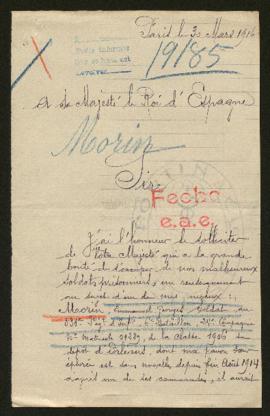 Paris le 30 Mars 1916
19185
A Sa Majesté le Roi d'Espagne
Morin
Sire
Fecho
e.a.e.
J'ai l'honneur de solliciter
de Votre Majesté qui a la grande
bonté de s'occuper de nos malheureux
soldats prisonniers, un renseignement
au sujet d'un de mes neveux :
Morin, Emmanuel Georges, Soldat au
Bataillon, Compagnie
de la Classe 1906 au
dépot d' dont ma pauvre
est sans nouvelle depuis fin Août 1914
un de ses camarades, il aurait